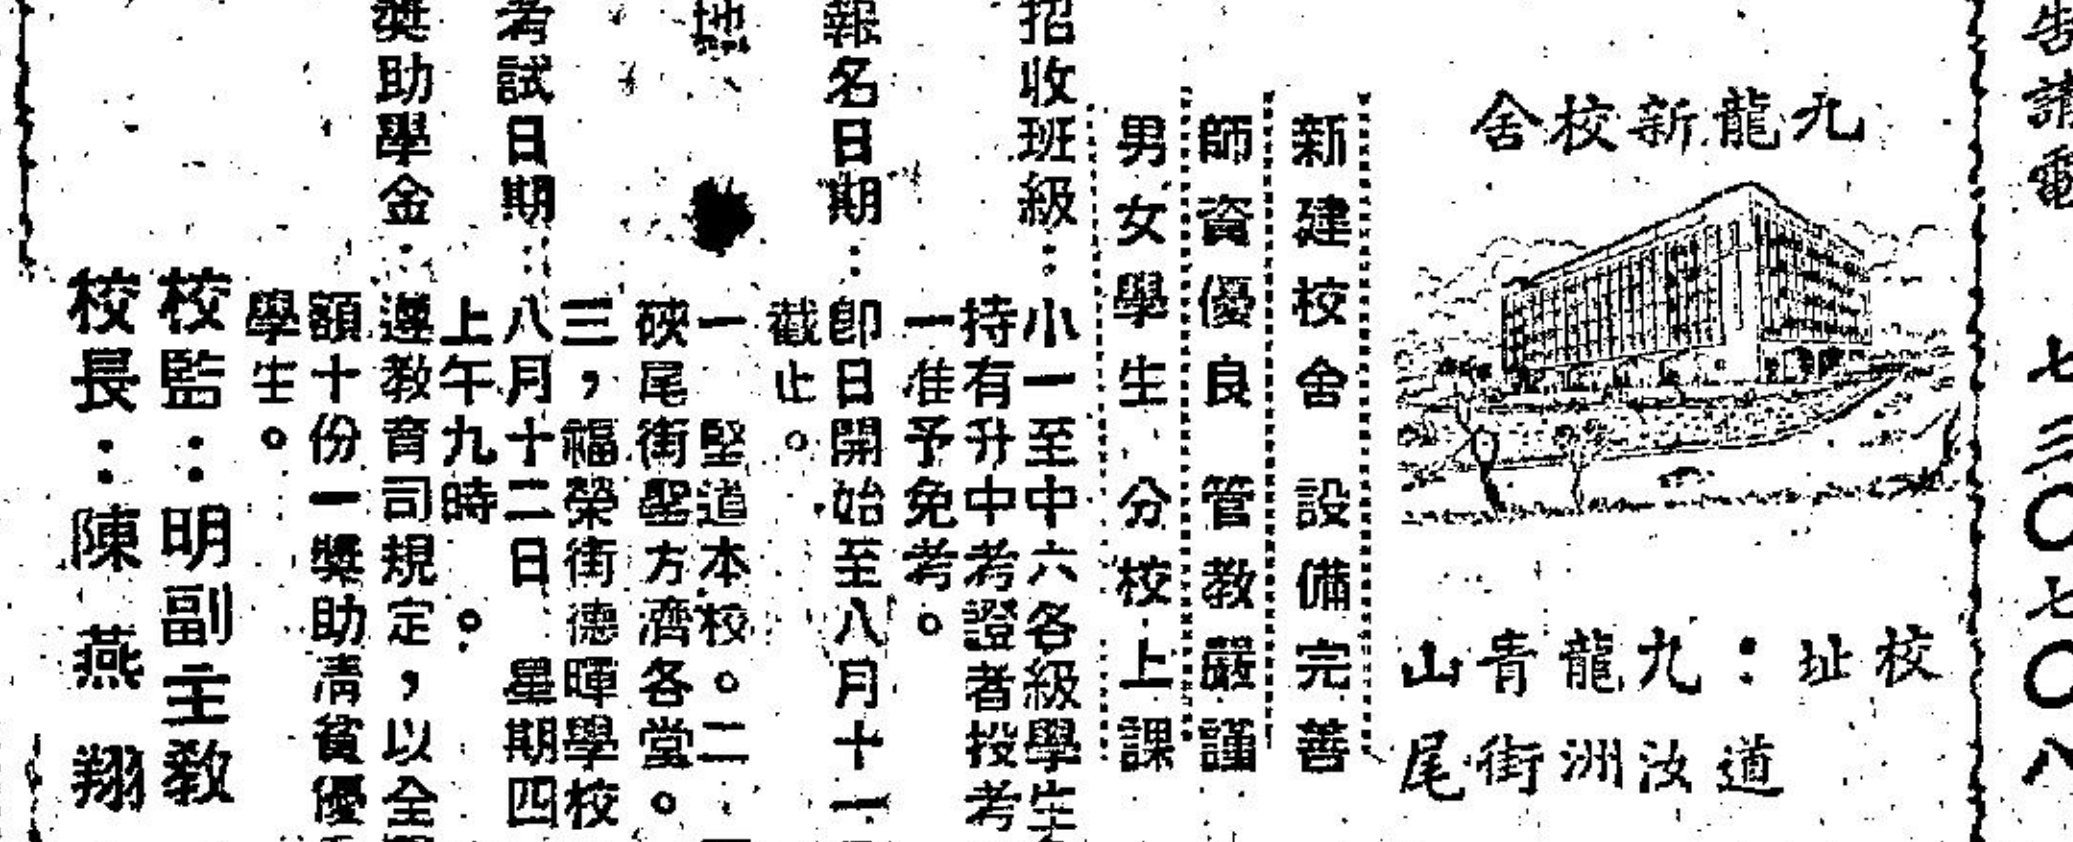 告請電 七三〇七〇八
九龍新校舍
校址：九龍青山
道汝洲街尾
新建校舍 設備完善
師資優良 管教嚴謹
男女學生 分校上課
招收班級：小一至中六各級學生
持有升中考證者投考
一准予免考。
報名日期：即日開始至八月十一
截止。
地
一 堅道本校。二
硤尾街聖方濟各堂。
三，福榮街德暉學校
考試日期：八月十二日 星期四
上午九時。
獎助學金：遵教育司規定，以全
額十份一獎助清貧優
學生。
校監：明副主教
校長：陳燕翔